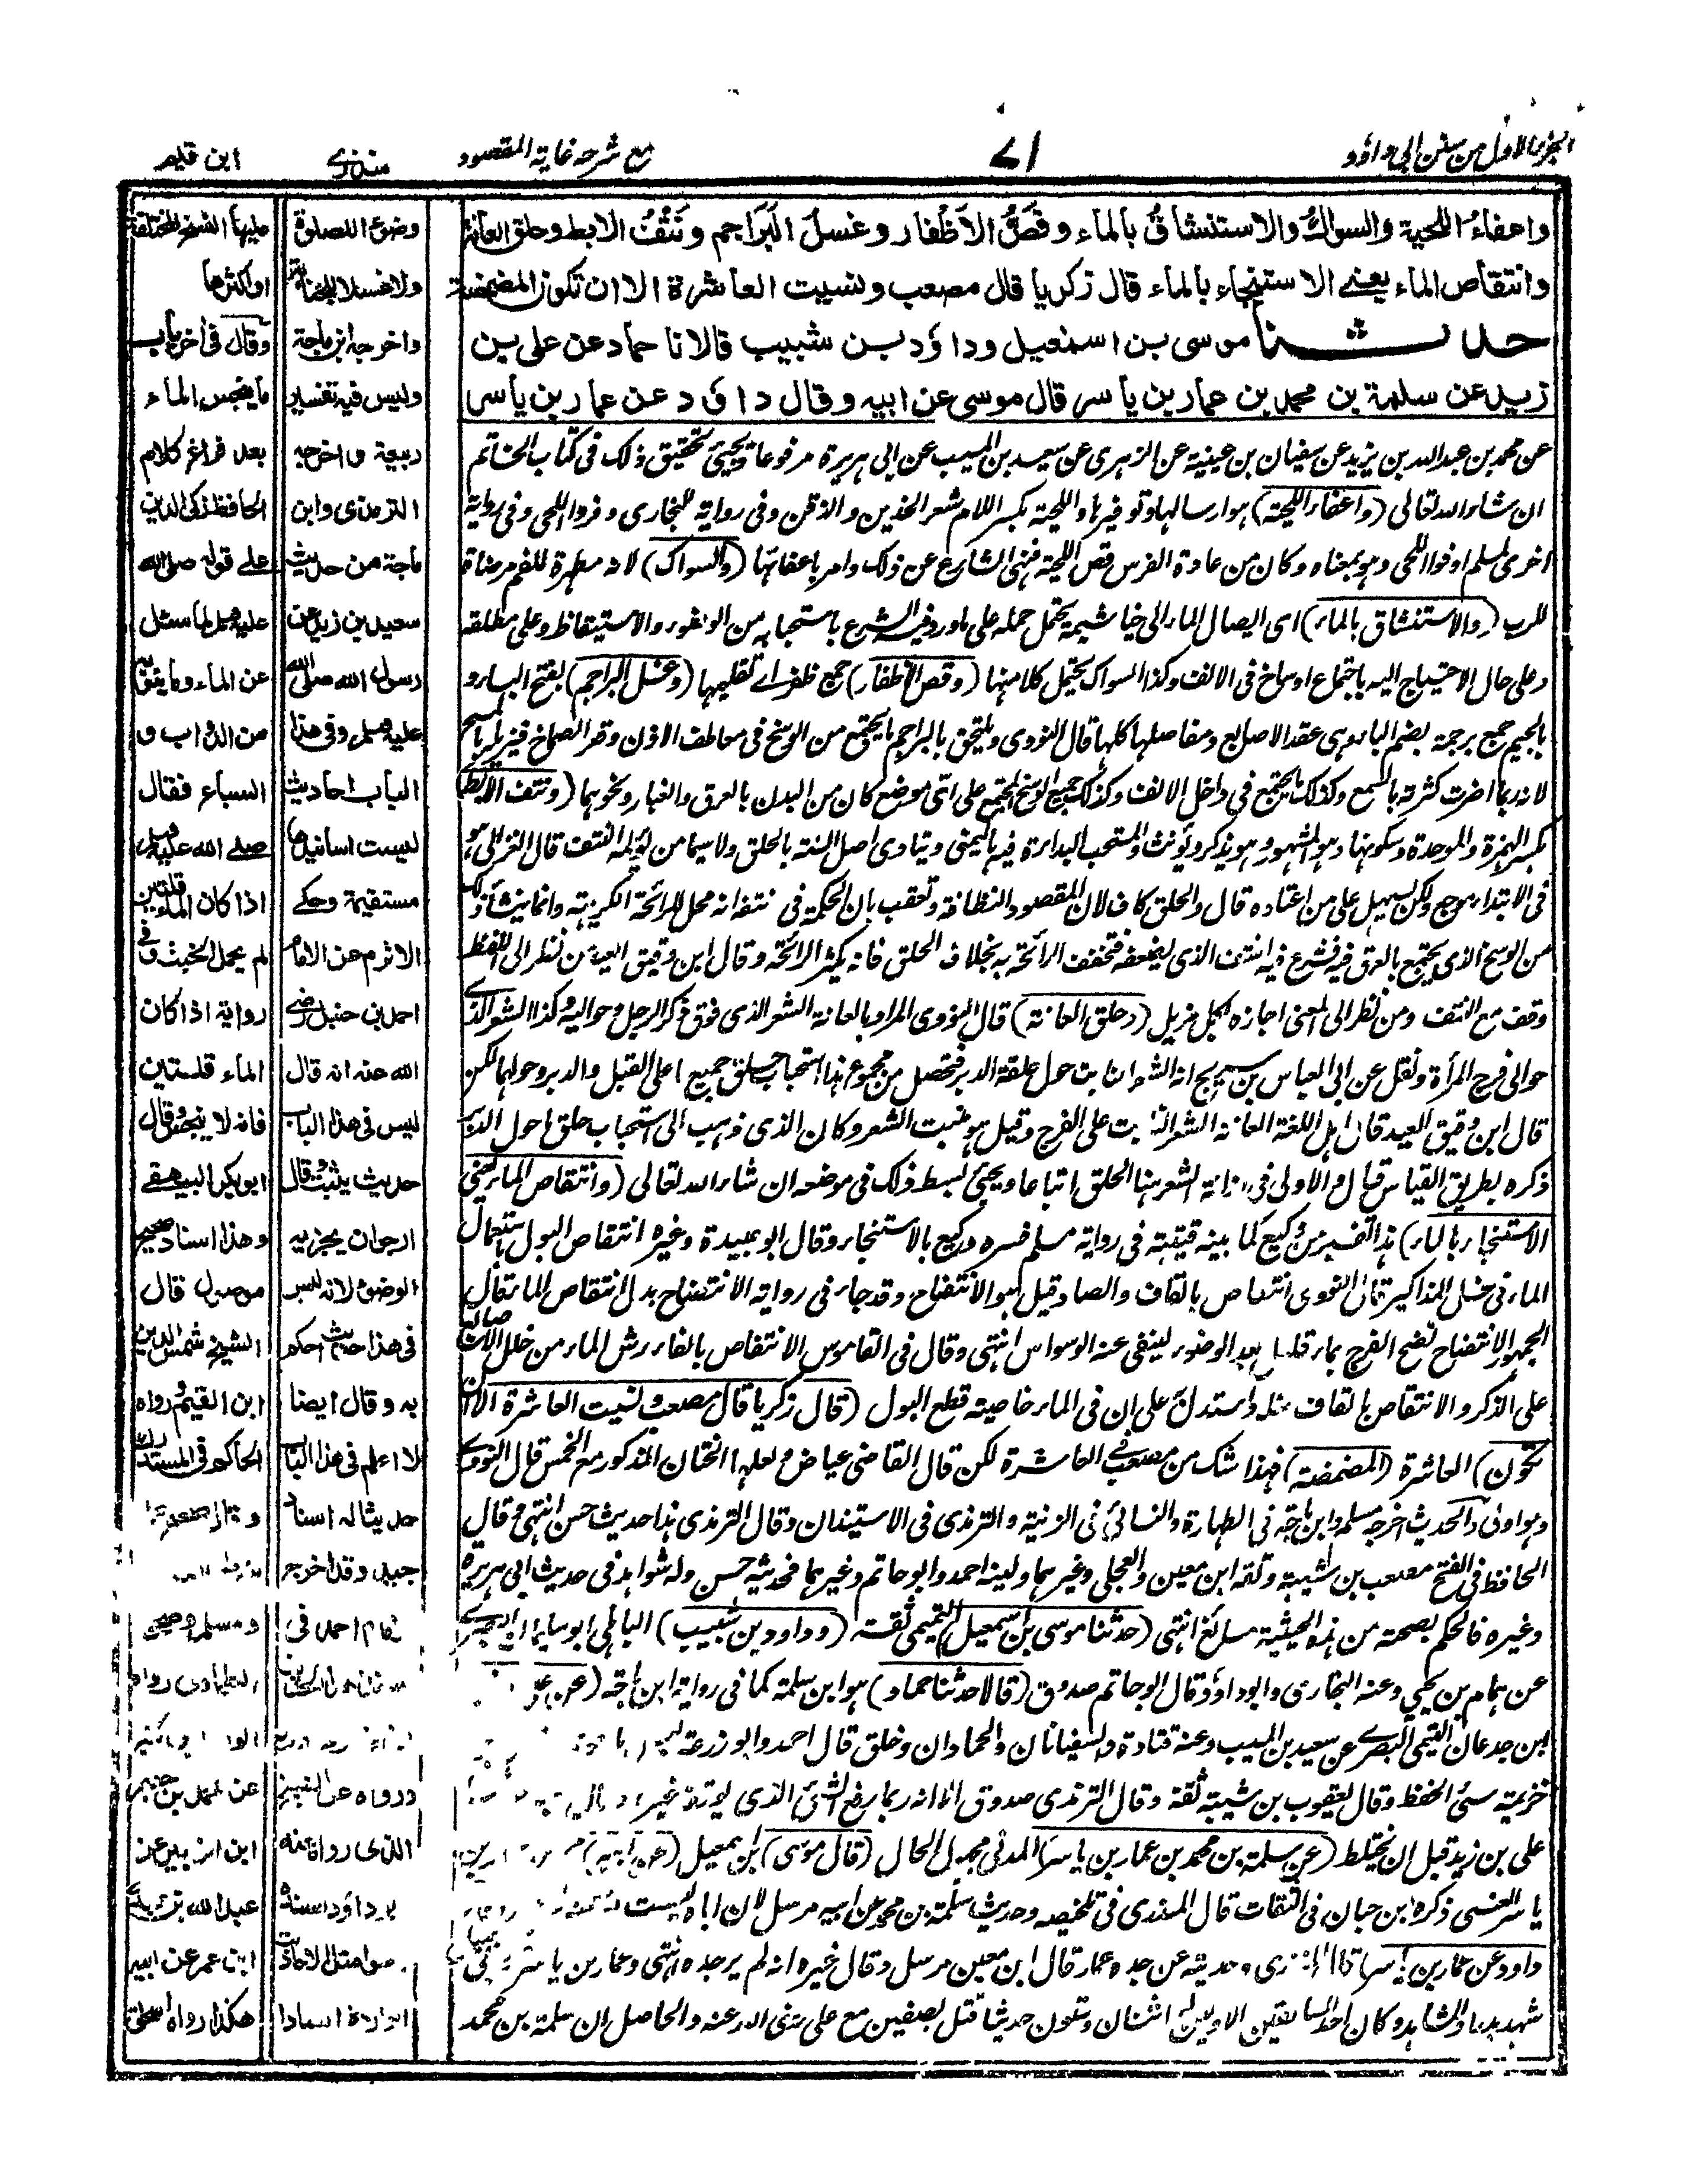 الجزء الاول من سنن ابي داؤد
۷۱
مع شرحه غاية المقصود
منذري
ابن قيم
واعفاءُ اللحية والسواكُ والاستنشاقُ بالماء وقصُّ الاَظْفار وغسلُ البَرَاجم ونَتْفُ الابط وحلق العانة
وانتقاص الماء يعني الاستنجاء بالماء قال زكريا قال مصعب ونسيت العاشرة الا ان تكون المضمضة
حدثنا موسى بن اسمعيل وداؤد بن شبيب قالا نا حماد عن على بن
زيد عن سلمة بن محمد بن عمار بن ياسر قال موسى عن ابيه وقال داؤد عن عمار بن ياسر
عن محمد بن عبد الله بن يزيد عن سفيان بن عيينة عن الزهرى عن سعيد بن المسيب عن ابى هريرة مرفوعا ويجيئ تحقيق ذلك فى كتاب الخاتم
ان شاء الله تعالى (واعفاء اللحية) هو ارسالها وتوفيرها واللحية بكسر اللام شعر الخدين والذقن وفى رواية للبخارى وفروا اللحى وفى رواية
اخرى لمسلم اوفوا اللحى وهو بمعناه وكان من عادة الفرس قص اللحية فنهى الشارع عن ذلك وامر باعفائها (والسواك) لانه مطهرة للفم مرضاة
للرب (والاستنشاق بالماء) اى ايصال الماء الى خياشيمه يحتمل حمله على ما ورد فيه الشرع باستحبابه من الوضوء والاستيقاظ وعلى مطلقه
وعلى حال الاحتياج اليه باجتماع اوساخ فى الانف وكذا السواك يحتمل كلا منها (وقص الاظفار) جمع ظفر اے تقليمها (وغسل البراجم) بفتح الباء و
بالجيم جمع برجمة بضم الباء وهى عقد الاصابع ومفاصلها كلها قال النووى ويلتحق بالبراجم ما يجتمع من الوسخ فى معاطف الاذن وقعر الصماخ فيزيله بالمسح
لانه ربما اضرت كثرته بالسمع وكذلك ما يجتمع فى داخل الانف وكذلك جميع الوسخ المجتمع على اى موضع كان من البدن بالعرق والغبار ونحوهما (ونتف الابط)
بكسر الهمزة والموحدة وسكونها وهو المشهور وهو يذكر ويؤنث والمستحب البداءة فيه باليمنى ويتادى اصل السنة بالحلق ولا سيما من يؤلمه النتف قال الغزالى هو
فى الابتداء موجع ولكن يسهل على من اعتاده قال والحلق كاف لان المقصود النظافة وتعقب بان الحكمة فى نتفه انه محل للرائحة الكريهة وانما ينشأ ذلك
من الوسخ الذى يجتمع بالعرق فيه فشرع فيه النتف الذى يضعفه فتخفف الرائحة به بخلاف الحلق فانه يكثر الرائحة وقال ابن دقيق العيد من نظر الى اللفظ
وقف مع النتف ومن نظر الى المعنى اجازه بكل مزيل (وحلق العانة) قال النووى المراد بالعانة الشعر الذى فوق ذكر الرجل وحواليه وكذا الشعر الذى
حوالى فرج المرأة ونقل عن ابى العباس بن سريج انه الشعر النابت حول حلقة الدبر فتحصل من مجموع هذا استحباب حلق جميع ا على القبل والدبر وحولهما لكن
قال ابن دقيق العيد قال اهل اللغة العانة الشعر النابت على الفرج وقيل هو منبت الشعر وكان الذى ذهب الى استحباب حلق ما حول الدبر
ذكره بطريق القياس قال والاولى فى ازالة الشعر هنا الحلق اتباعا ويجيئ بسط ذلك فى موضعه ان شاء الله تعالى (وانتقاص الماء يعنى
الاستنجاء بالماء) هذا التفسير من وكيع كما بينه قتيبة فى رواية مسلم فسره وكيع بالاستنجاء وقال ابو عبيدة وغيره انتقاص البول باستعمال
الماء فى غسل المذاكير قال النووى انتقاص بالقاف والصاد وقيل هو الانتفاح وقد جاء فى رواية الانتضاح بدل انتقاص الماء قال
الجمهور الانتضاح نضح الفرج بماء قليل بعد الوضوء لينفى عنه الوسواس انتهى وقال فى القاموس الانتفاص بالفاء رش الماء من خلل الاصابع
على الذكر والانتقاص بالقاف مثله واستدل على ان فى الماء خاصية قطع البول (قال زكريا قال مصعب ونسيت العاشرة الا ان
تكون) العاشرة (المضمضة) فهذا شك من مصعب فى العاشرة لكن قال القاضى عياض ولعلها الختان المذكور مع الخمس قال النووى
وهو اولى والحديث اخرجه مسلم وابن ماجة فى الطهارة والنسائى فى الزينة والترمذى فى الاستيذان وقال الترمذى هذا حديث حسن انتهى وقال
الحافظ فى الفتح مصعب بن شيبة وثقه ابن معين والعجلى وغيرهما ولينه احمد وابو حاتم وغيرهما فحديثه حسن وله شواهد فى حديث ابى هريرة
وغيره فالحكم بصحته من هذه الحيثية سائغ انتهى (حدثنا موسى بن اسمعيل) التيمى ثقة (وداود بن شبيب) الباهلى ابو سليمان البصرى
عن همام بن يحيى وعنه البخارى وابو داؤد قال ابو حاتم صدوق (قالا حدثنا حماد) هو ابن سلمة كما فى رواية ابن ماجة (عن على
ابن جدعان التيمى البصرى عن سعيد بن المسيب وعنه قتادة والسفيانان والحمادان وخلق قال احمد وابو زرعة ليس
خزيمة سئ الحفظ وقال يعقوب بن شيبة ثقة وقال الترمذى صدوق الا انه ربما رفع الشئ الذى يوقفه غيره
على بن زيد قبل ان يختلط (عن سلمة بن محمد بن عمار بن ياسر) المدنى مجهول الحال (قال موسى) بن اسمعيل (عن ابيه)
ياسر العنسى ذكره ابن حبان فى الثقات قال المنذرى فى تلخيصه وحديث سلمة بن محمد عن ابيه مرسل لان اباه ليست
داود عن عمار بن ياسر قال المنذرى وحديثه عن جده عمار قال ابن معين مرسل وقال غيره انه لم ير جده انتهى وعمار بن ياسر
شهد بدرا والمشاهد وكان احد السابقين الاولين اثنان وستون حديثا قتل بصفين مع على رضى الله عنه والحاصل ان سلمة بن محمد
وضوء للصلوة
ولا غسلا للجنابة
واخرجه ابن ماجة
وليس فيه تفسير
ربيعة واخرجه
الترمذى وابن
ماجة من حديث
سعيد بن زيد عن
رسول الله صلى الله
عليه وسلم وفى هذا
الباب احاديث
ليست اسانيدها
مستقيمة وحكى
الاثرم عن الامام
احمد بن حنبل رضى
الله عنه انه قال
ليس فى هذا الباب
حديث يثبت وقال
ارجو ان يجزيه
الوضوء لانه ليس
فى هذا حديث احكم
به وقال ايضا
لا اعلم فى هذا الباب
حديثا له اسناد
جيد وقد اخرج
امام احمد فى
ورواه عن الشيخ
الذى رواه عنه
ابو داؤد بسنده
عليها الشيخ
او اكثرها
وقال فى اخر باب
ما ينجس الماء
بعد فراغ كلام
الحافظ زكى الدين
على قوله صلى الله
عليه وسلم لما سئل
عن الماء وما ينوبه
من الدواب و
السباع فقال
صلى الله عليه وسلم
اذا كان الماء قلتين
لم يحمل الخبث وفى
رواية اذا كان
الماء قلتين
فانه لا ينجس وقال
ابو بكر البيهقى
وهذا اسناد صحيح
موصول قال
الشيخ شمس الدين
ابن القيم رواه
الحاكم فى المستدرك
عن محمد بن جعفر
ابن الزبير عن
عبد الله بن
ابن عمر عن ابيه
هكذا رواه اسحق